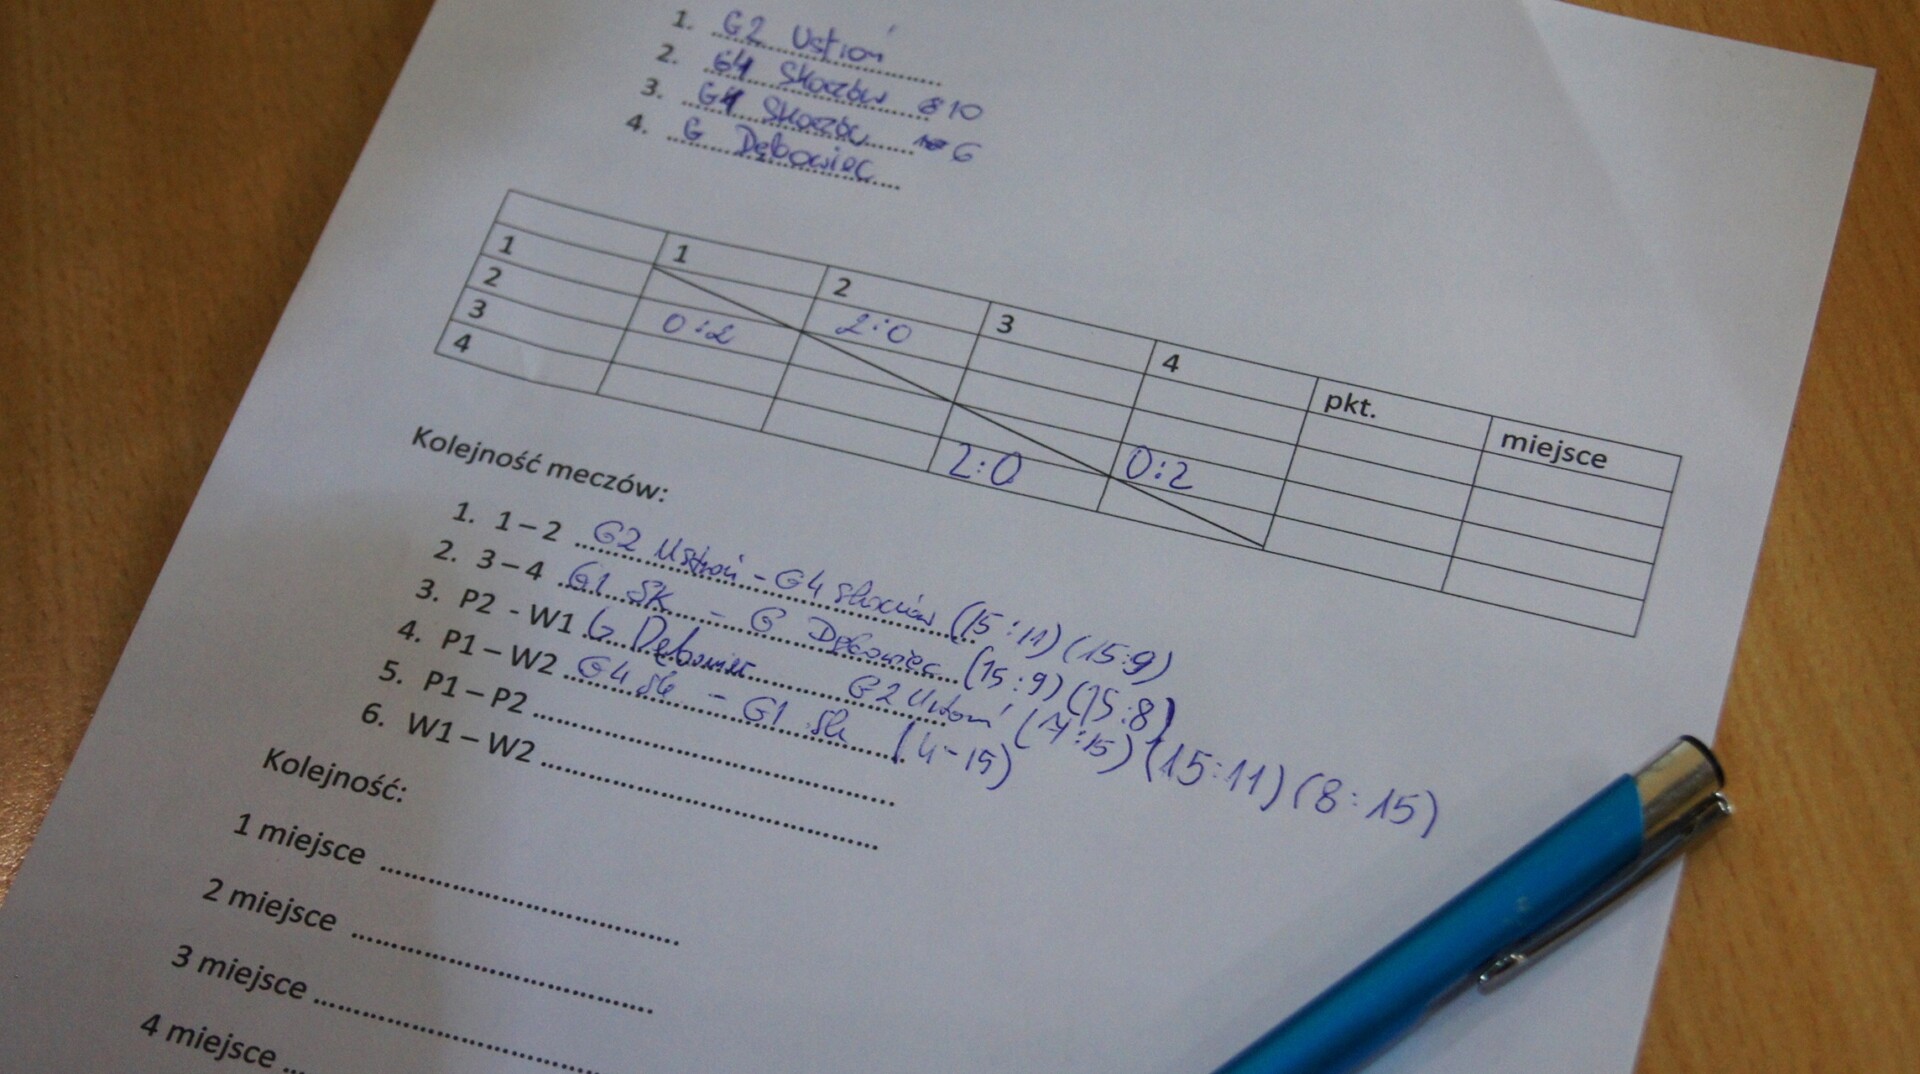 1. G2 Ustroń
2. G4 Skoczów 10
3. G1 Skoczów 6
4. G Dębowiec
1 2 3 4 pkt. miejsce
1 2:0
2 0:2
3 0:2
4 2:0
Kolejność meczów:
1. 1 – 2 G2 Ustroń - G4 Skoczów (15:11) (15:9)
2. 3 – 4 G1 SK - G Dębowiec (15:9) (15:8)
3. P2 - W1 G Dębowiec G2 Ustroń (17:15) (15:11) (8:15)
4. P1 – W2 G4 Sk - G1 Sk (4-15)
5. P1 – P2
6. W1 – W2
Kolejność:
1 miejsce
2 miejsce
3 miejsce
4 miejsce